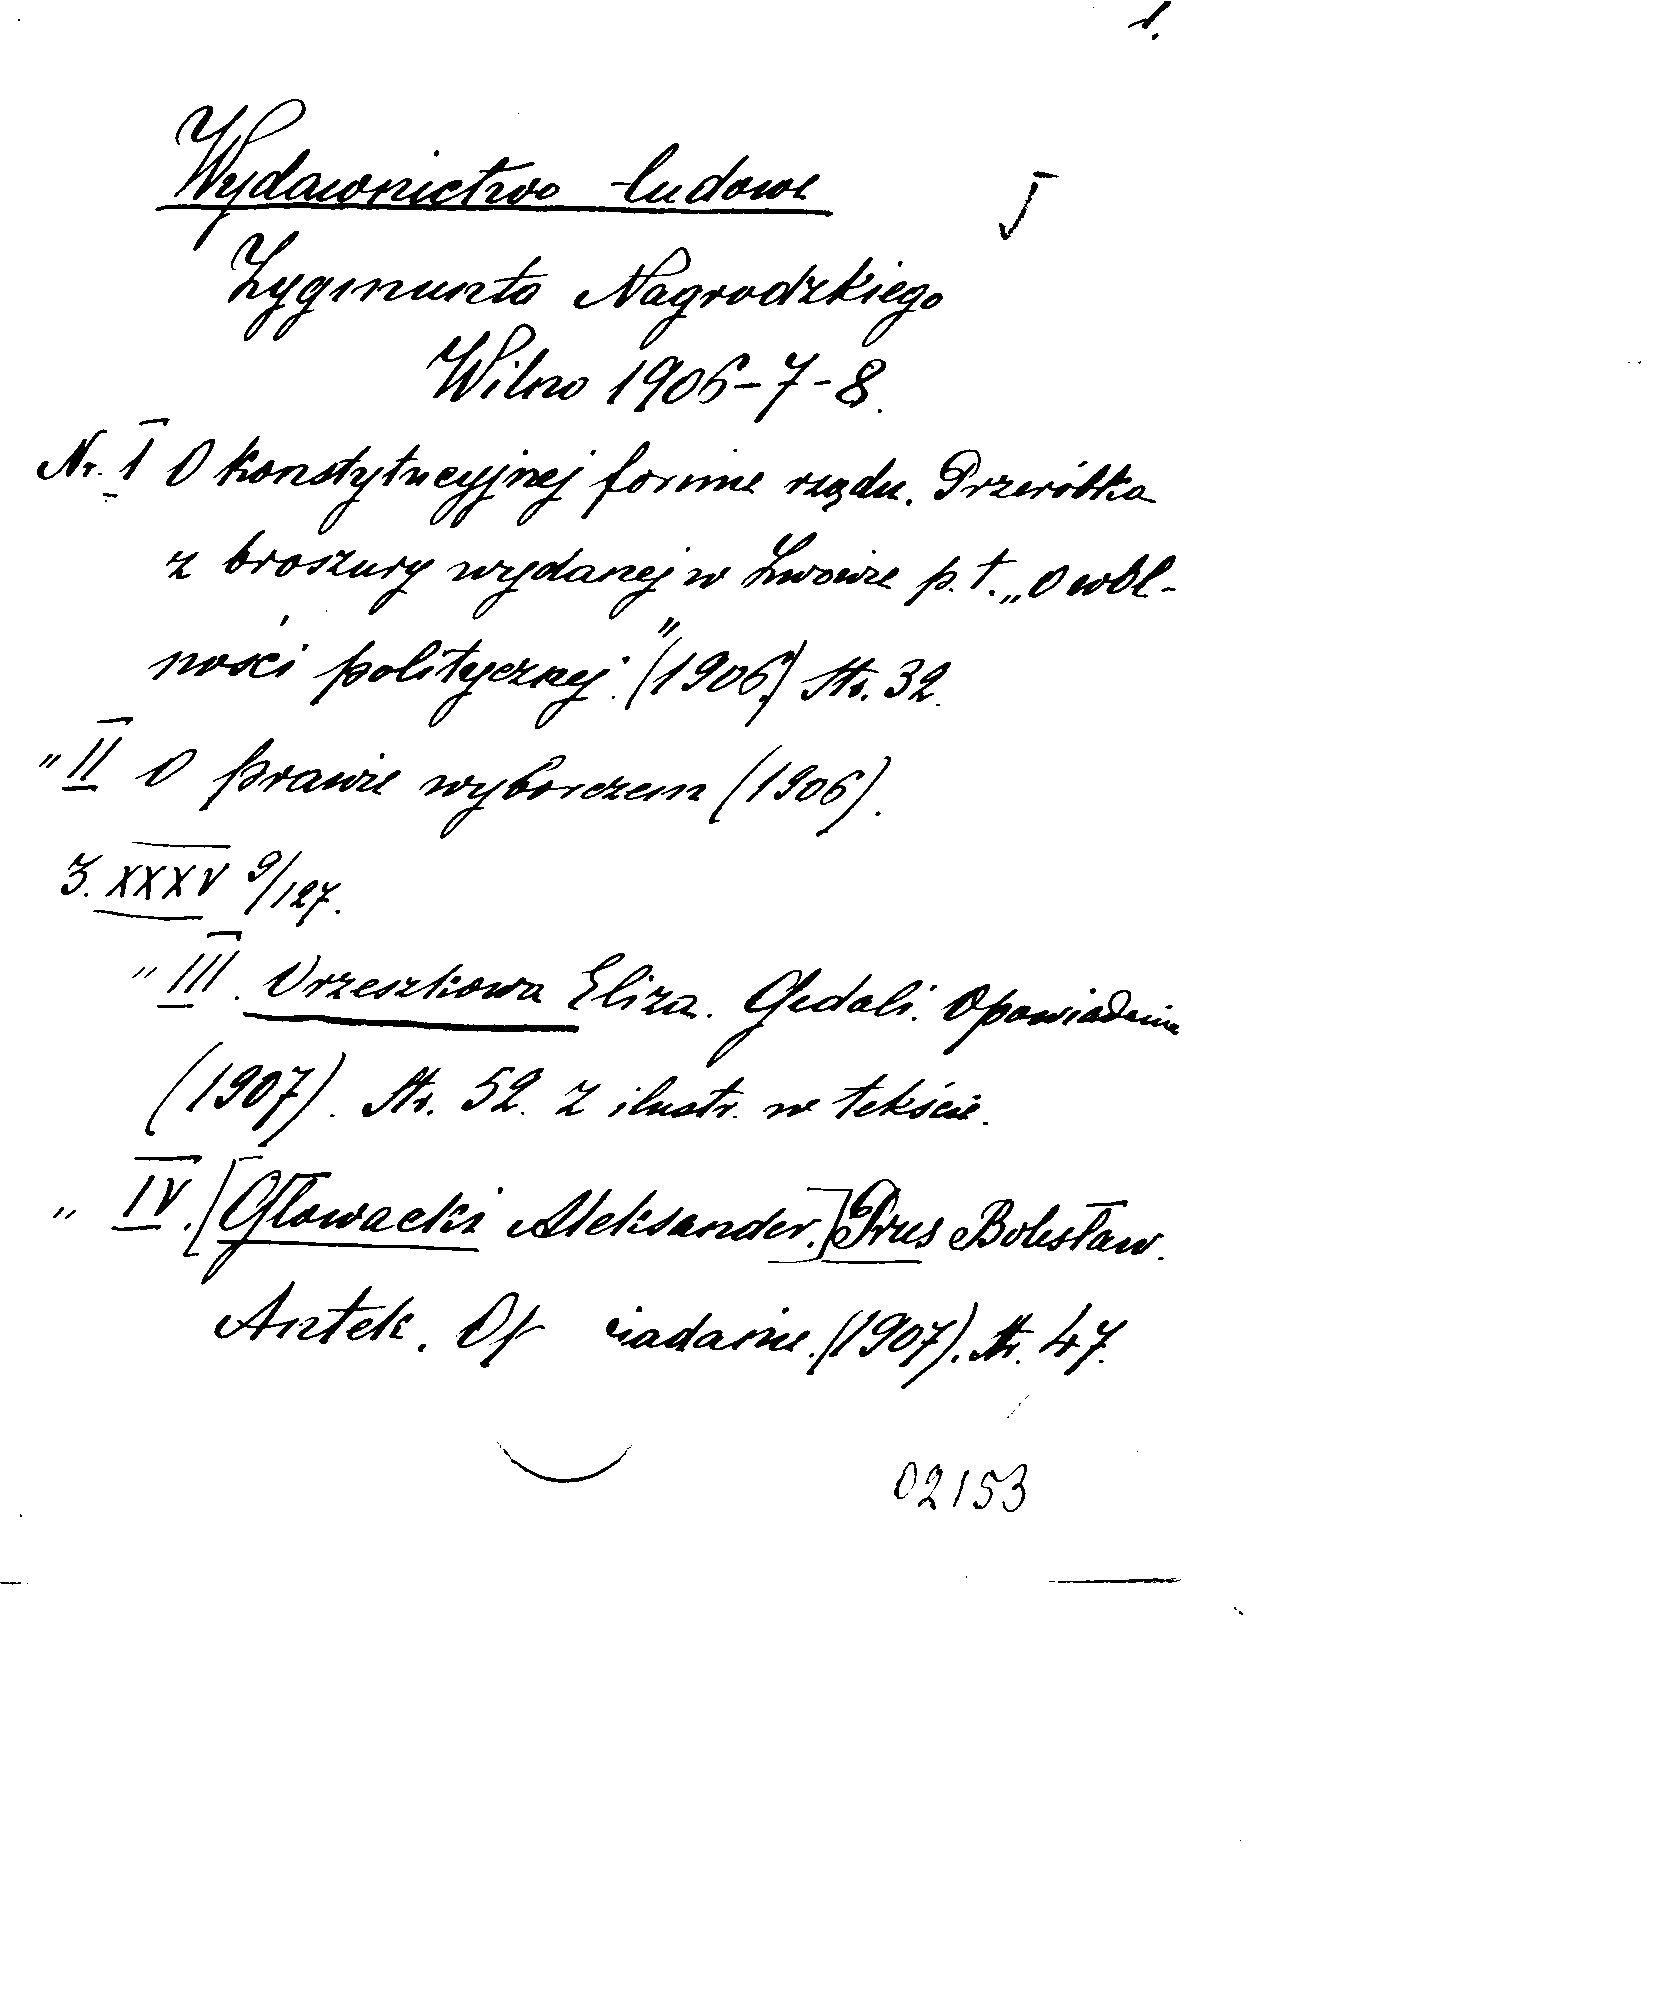 1.
Wydawnictwo ludowe
J
Zygmunta Nagrodzkiego
Wilno 1906-7-8.
Nr. I O konstytucyjnej formie rządu. Przeróbka
z broszury wydanej w Lwowie p.t. „O wol-
ności politycznej." (1906.) Str. 32.
" II O prawie wyborczem (1906).
3. XXXV 9/127.
" III. Orzeszkowa Eliza. Gedali. Opowiadanie
(1907). Str. 52. Z ilustr. w tekście.
" IV. [Głowacki Aleksander.] Prus Bolesław.
Antek. Op iadanie. (1907). Str. 47.
02153